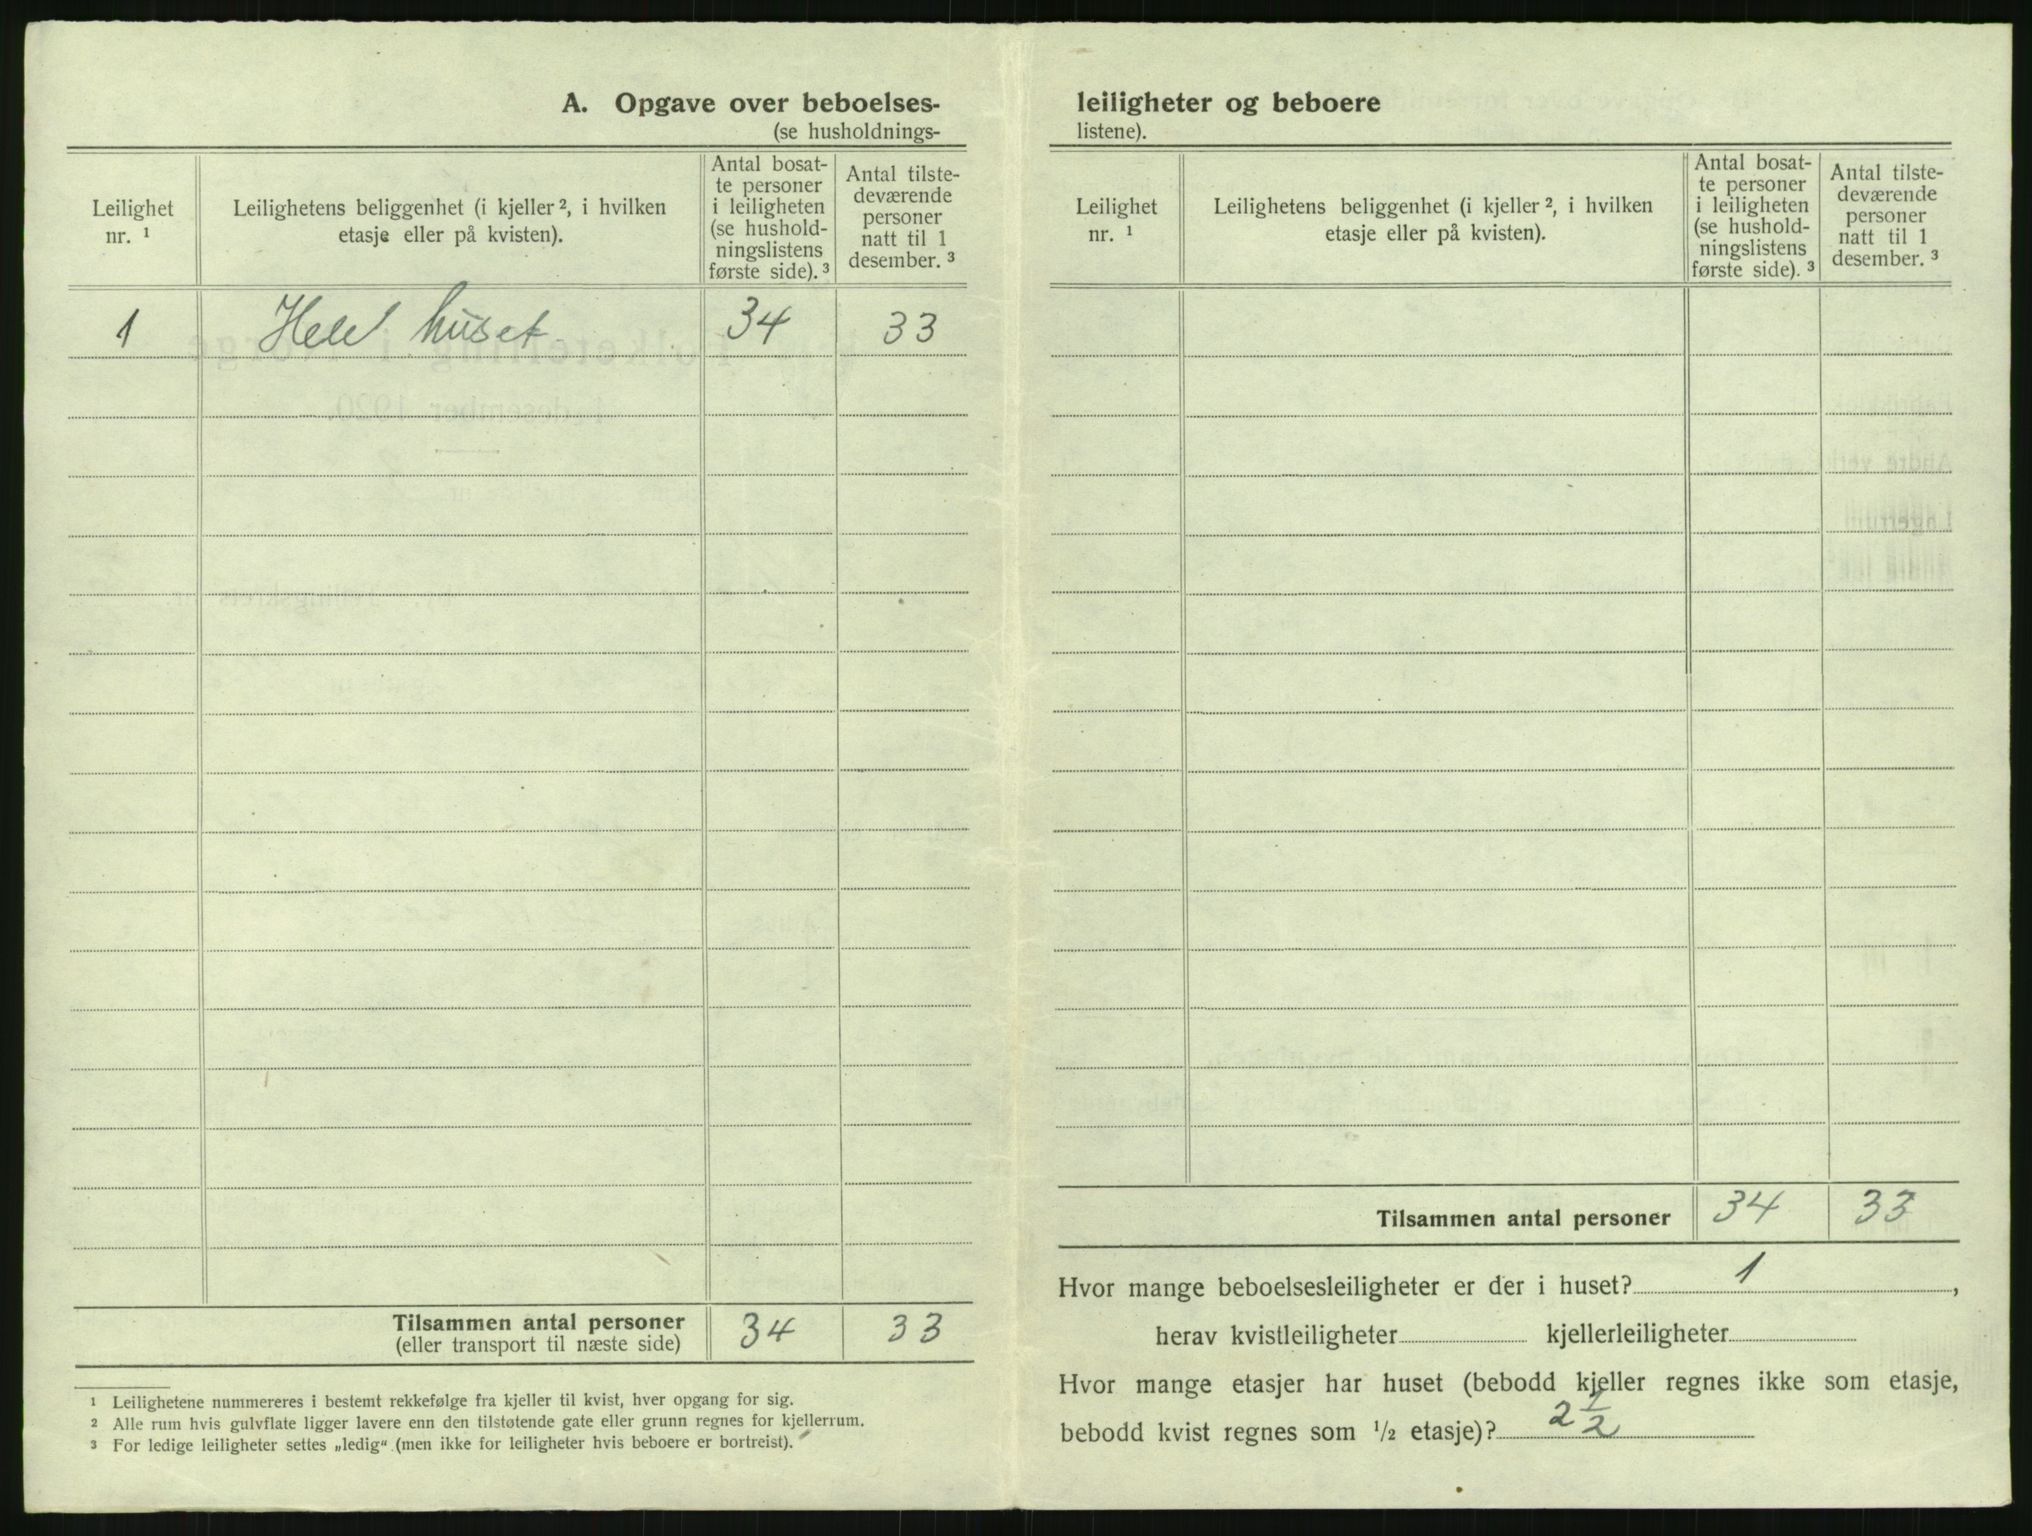 A. Opgave over beboelses-
(se husholdnings-
Leilighet
nr. ¹
Leilighetens beliggenhet (i kjeller ², i hvilken
etasje eller på kvisten).
Antal bosat-
te personer
i leiligheten
(se hushold-
ningslistens
første side). ³
Antal tilste-
deværende
personer
natt til 1
desember. ³
1 Hele huset 34 33
Tilsammen antal personer 34 33
(eller transport til næste side)
¹ Leilighetene nummereres i bestemt rekkefølge fra kjeller til kvist, hver opgang for sig.
² Alle rum hvis gulvflate ligger lavere enn den tilstøtende gate eller grunn regnes for kjellerrum.
³ For ledige leiligheter settes „ledig“ (men ikke for leiligheter hvis beboere er bortreist).
leiligheter og beboere
listene).
Leilighet
nr. ¹
Leilighetens beliggenhet (i kjeller ², i hvilken
etasje eller på kvisten).
Antal bosat-
te personer
i leiligheten
(se hushold-
ningslistens
første side). ³
Antal tilste-
deværende
personer
natt til 1
desember. ³
Tilsammen antal personer 34 33
Hvor mange beboelsesleiligheter er der i huset? 1,
herav kvistleiligheter kjellerleiligheter
Hvor mange etasjer har huset (bebodd kjeller regnes ikke som etasje,
bebodd kvist regnes som ½ etasje)? 2 ½